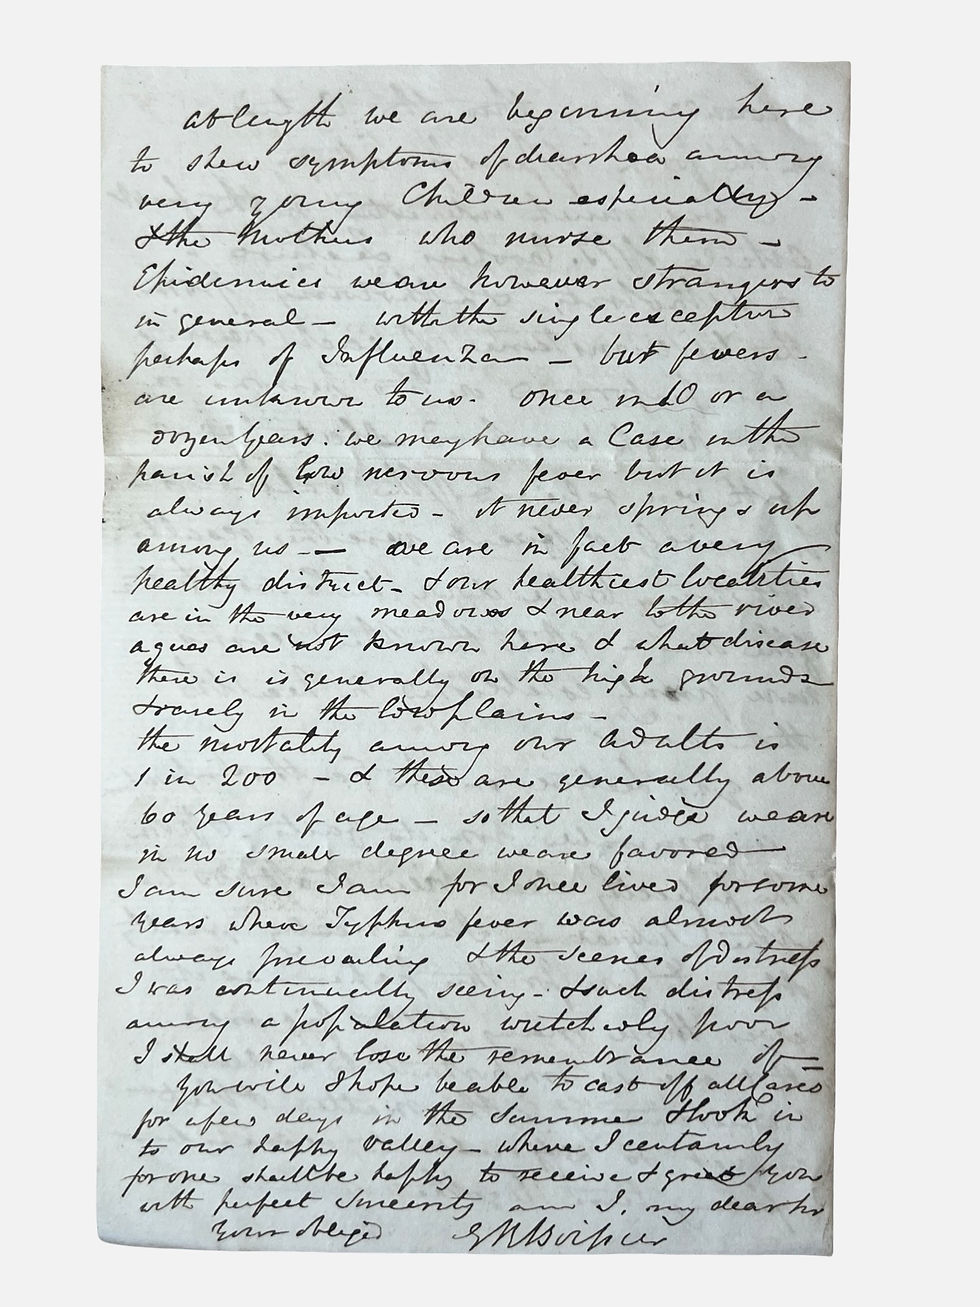 at length we are beginning here
to shew symptoms of diarrhea among
very young Children especially -
& the Mothers who nurse them -
Epidemics we are however strangers to
in general - with the single exception
perhaps of Influenza - but fevers -
are unknown to us. once in 10 or a
dozen years. we may have a Case in the
parish of low nervous fever but it is
always imported - it never springs up
among us - - we are in fact a very
healthy district - & our healthiest localities
are in the very meadows & near to the river
agues are not known here & what disease
there is is generally on the high grounds
& rarely in the low plains -
the mortality among our adults is
1 in 200 - & these are generally above
60 years of age - so that I judge we are
in no small degree we are favored
I am sure I am for I once lived for some
years where Typhus fever was almost
always prevailing & the scenes of distress
I was continually seeing - & such distress
among a population wretchedly poor
I shall never lose the remembrance of -
you will I hope be able to cast off all Cares
for a few days in the Summer & look in
to our happy valley - where I certainly
for one shall be happy to receive & greet you
with perfect sincerity am I, my dear Sir
Your obliged